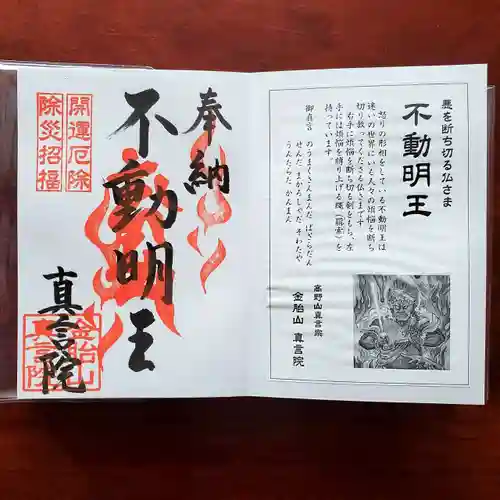 奉納
不動明王
真言院
開運厄除
除災招福
金胎山
真言院
悪を断ち切る仏さま
不動明王
怒りの形相をしている不動明王は
迷いの世界にいる人々の煩悩を断ち
切り救ってくださる仏さまです。
右手に煩悩を断ち切る剣をもち、左
手には煩悩を縛り上げる縄(羂索)を
持っています。
御真言
のうまくさんまんだ ばざらだん
せんだ まかろしゃだ そわたや
うんたらた かんまん
高野山真言宗
金胎山 真言院